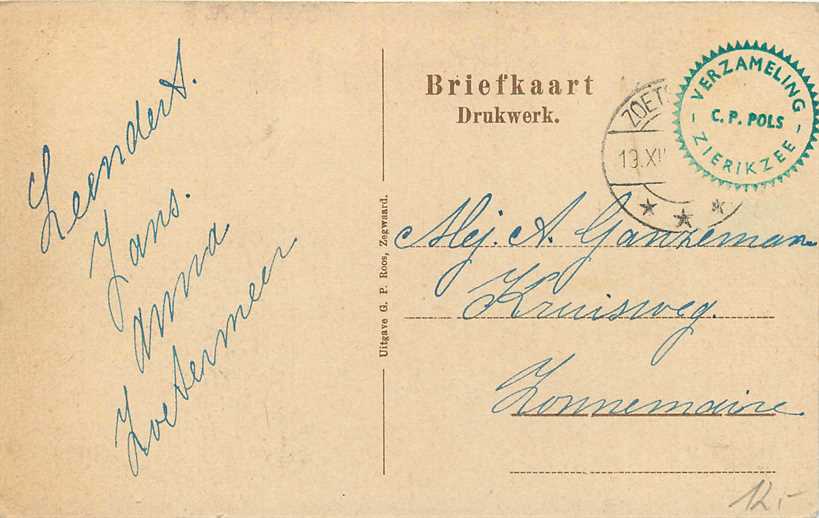 Leendert.
Jans.
Anna
Zoetermeer
Uitgave G. P. Roos, Zegwaard.
Briefkaart
Drukwerk.
ZOET
13.XII
VERZAMELING
C. P. POLS
ZIERIKZEE
Mej. A. Ganzeman
Kruisweg.
Zonnemaire
12,-